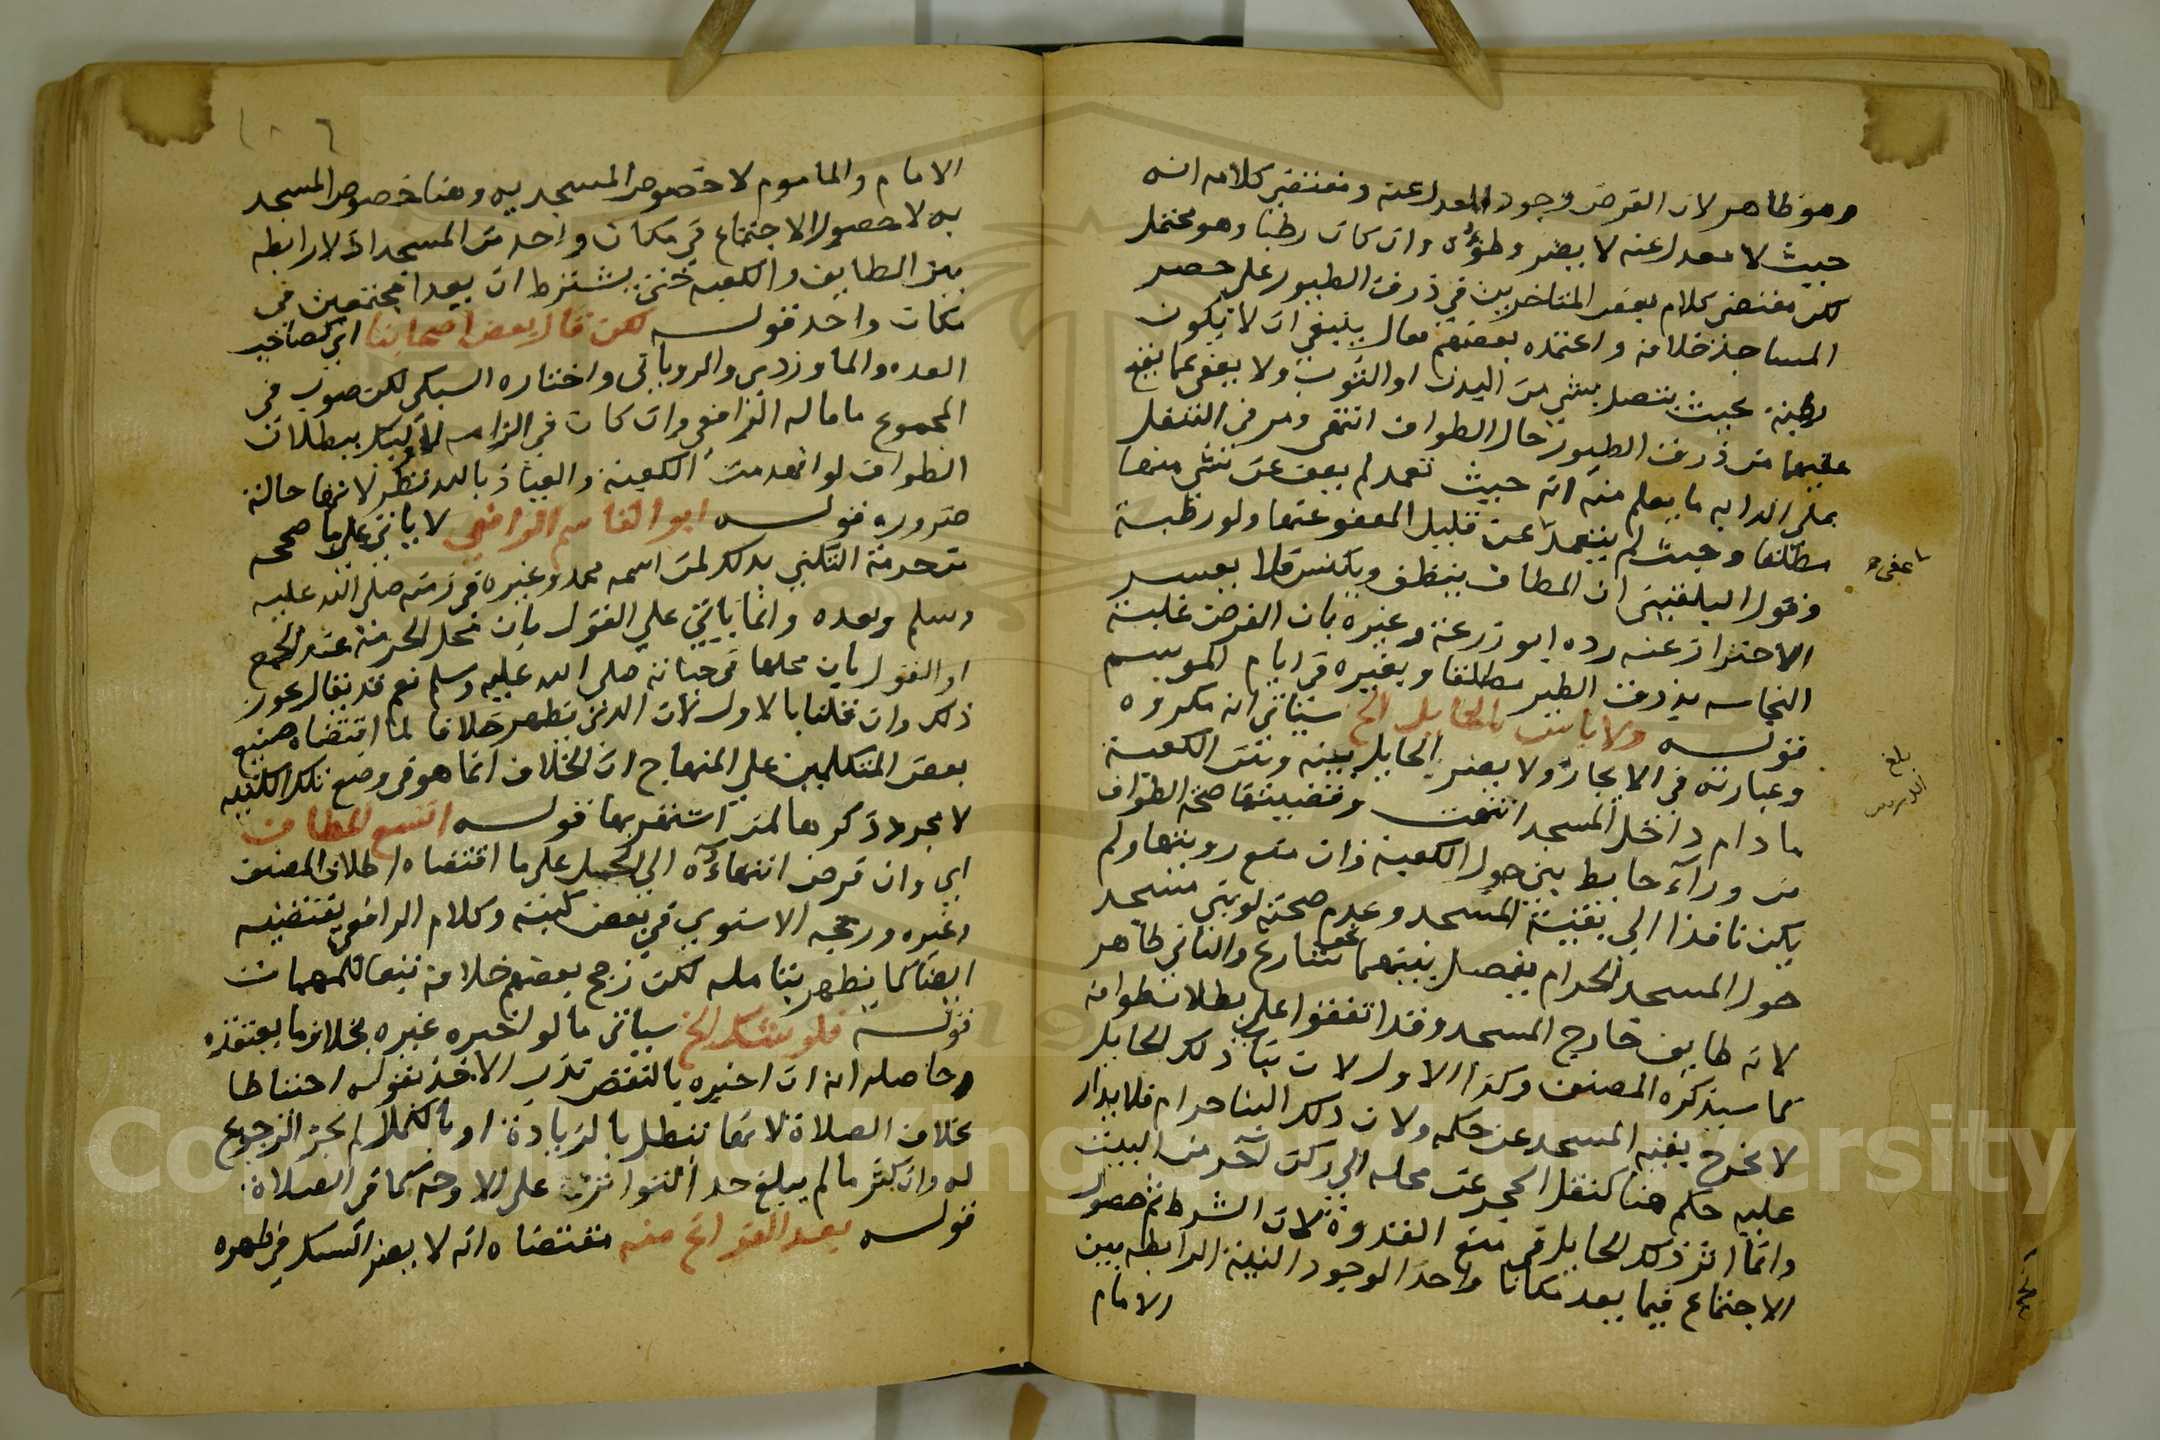 وهو ظاهر لان الفرض وجود المعدل عنه ومقتضى كلامه انه
حيث لا معدل عنه لا يضر وطؤه وان كان رطبا وهو محتمل
لكن مقتضى كلام بعض المتاخرين في ذرق الطيور على حصر
المساجد خلافه واعتمده بعضهم فقال ينبغي ان لا يكون
رطبة بحيث يتصل بشي من البدن او الثوب ولا يعفى عما يقع
عليهما من ذرق الطيور حال الطواف انتهى ومر في التنفل
على الدابه ما يعلم منه انه حيث تعمد لم يعف عن شي منها
مطلقا وحيث لم يتعمد عن قليل المعفو عنها ولو رطبة
وقول البلقيني ان المطاف ينظف ويكنس فلا يعسر
الاحتراز عنه رده ابو زرعة وغيره بان الفرض غلبة
النجاسه بذرق الطير مطلقا وبغيره في ايام الموسم
قولـه ولا باس بالحايل الخ سياتي انه مكروه
وعبارته في الايجاز ولا يضر الحايل بينه وبين الكعبة
ما دام داخل المسجد انتهت وقضيتها صحة الطواف
من وراء حايط بين حول الكعبة وان منع رويتها ولم
يكن نافذا الي بقية المسجد وعدم صحته لو بني مسجد
حول المسجد الحرام يفصل بينهما نحو شارع والثاني ظاهر
لانه طايف خارج المسجد وقد اتفقوا على بطلان طوافه
كما سيذكره المصنف وكذا الاول لان بناء ذلك الحايل
لا يخرج بقية المسجد عن حكمه ولان ذلك البنا حرام فلا يدار
عليه حكم هنا كنقل الحجر عن محله الي ركن اخر من البيت
وانما اثر ذلك الحايل في منع القدوة لان الشرط ثم حصول
الاجتماع فيما يعد مكانا واحدا لوجود النية الرابطه بين
الامام
ما عفي
بلغ
التدريس
١٠٦
الامام والماموم لا خصوص المسجديه وهنا خصوص المسجد
يه لا حصول الاجتماع في مكان واحد من المسجد اذ لا رابطه
بين الطايف والكعبه حتى يشترط ان يعدا مجتمعين في
مكان واحد قولـه لكن قال بعض اصحابنا اي كصاحب
العده والماوردي والروياني واختاره السبكي لكن صوب في
المجموع ما قاله الرافعي وان كان في الزامه لاوليك ببطلان
الطواف لو انهدمت الكعبة والعياذ بالله نظر لانها حالة
ضروره قولـه ابو القاسم الرافعي لا ياتي على ما صححه
من حرمة التكني بذلك لمن اسمه محمد وغيره في زمنه صلى الله عليه
وسلم وبعده وانما ياتي علي القول بان محل الحرمة عند الجمع
او القول بان محلها في حياته صلى الله عليه وسلم نعم قد يقال يجوز
ذلك وان قلنا بالاول لان الذي يظهر خلافا لما اقتضاه صنيع
بعض المتكلمين على المنهاج ان الخلاف انما هو في وضع تلك الكنيه
لا مجرد ذكرها لمن اشتهر بها قولـه اتسع المطاف
اي وان فرض انتهاؤه الي الحل على ما اقتضاه اطلاق المصنف
وغيره ورجحه الاسنوي في بعض كتبه وكلام الرافعي يقتضيه
ايضا كما يظهر بتامله لكن رجح بعضهم خلافه تبعا للمهمات
قولـه فلو شك الخ سياتي ما لو اخبره غيره بخلاف ما يعتقده
وحاصله انه ان اخبره بالنقص ندب الاخذ بقوله احتياطا
بخلاف الصلاة لانها تبطل بالزيادة او بالكمال لم يجز الرجوع
له وان كثر ما لم يبلغ حد التواتر على الاوجه كما في الصلاة
قولـه بعد الفراغ منه مقتضاه انه لا يضر الشك في طهره